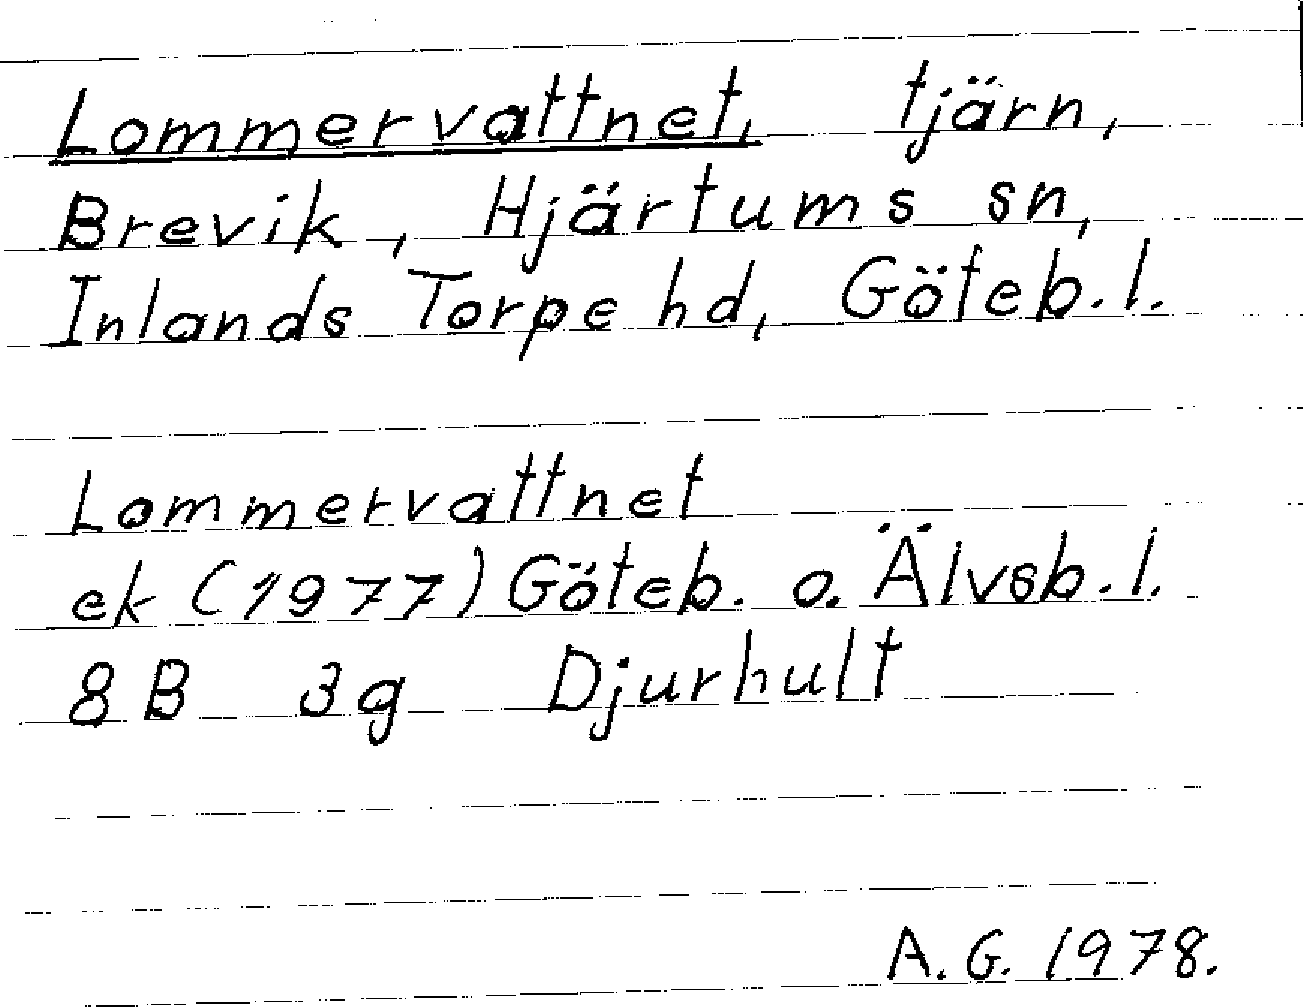 Lommervattnet, tjärn,
Brevik, Hjärtums sn,
Inlands Torpe hd, Göteb. l.
Lommervattnet
ek (1977) Göteb. o. Älvsb. l.
8B 3g Djurhult
A. G. 1978.